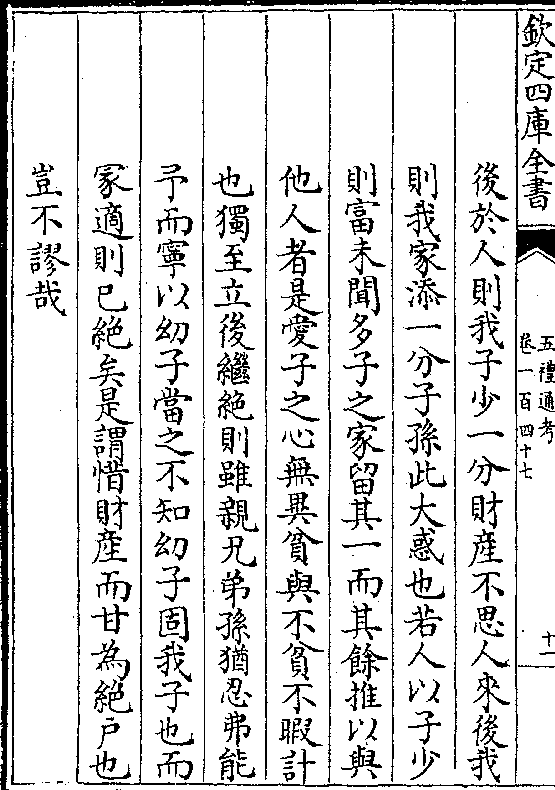 欽定四庫全書
五禮通考
卷一百四十七
十一
後於人則我子少一分財産不思人來後我
則我家添一分子孫此大惑也若人以子少
則富未聞多子之家留其一而其餘推以與
他人者是愛子之心無異貧與不貧不暇計
也獨至立後繼絶則雖親兄弟孫猶忍弗能
予而寧以幼子當之不知幼子固我子也而
冡適則已絶矣是謂惜財産而甘為絶戶也
豈不謬哉